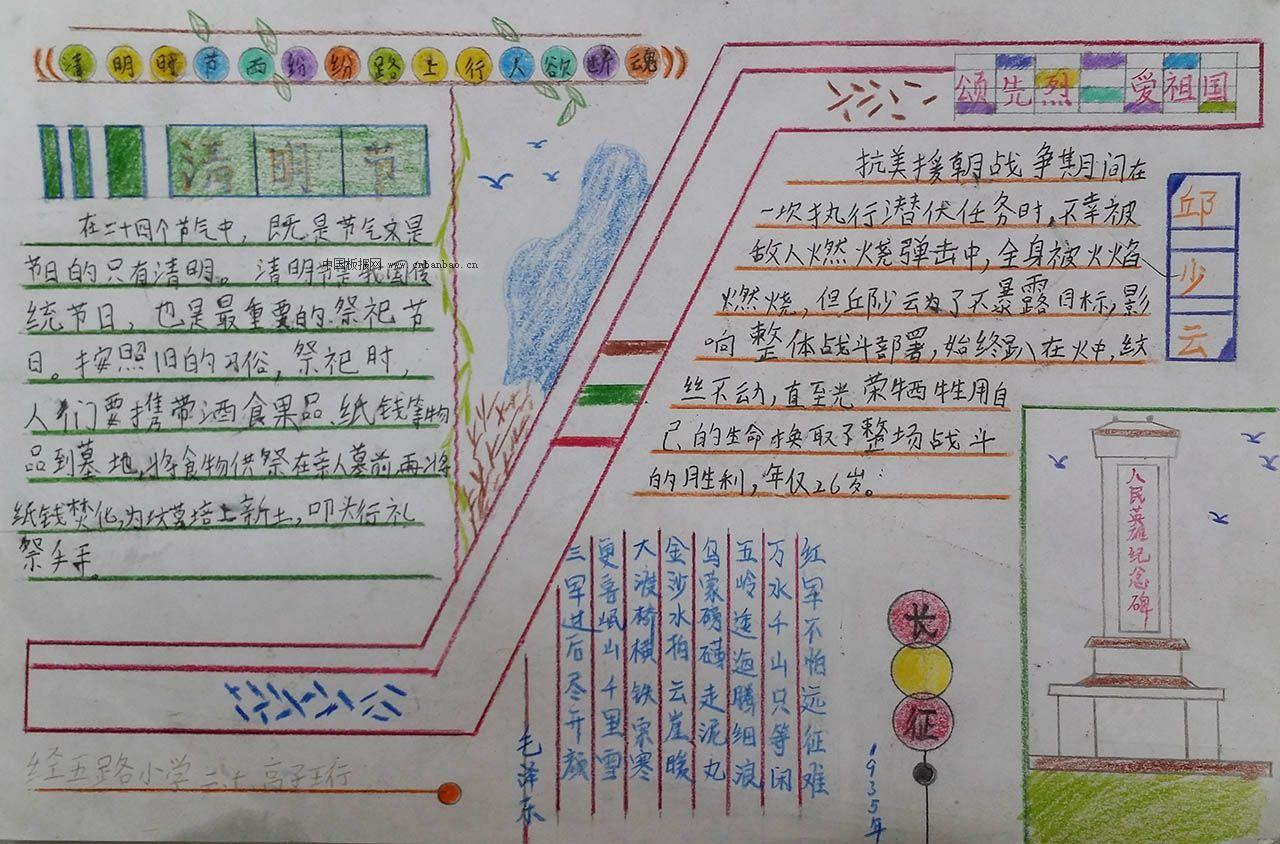 清明时节雨纷纷路上行人欲断魂
清明节
在二十四个节气中，既是节气又是
节日的只有清明。清明节是我国传
统节日，也是最重要的祭祀节
日。按照旧的习俗，祭祀时，
人们要携带酒食果品、纸钱等物
品到墓地，将食物供祭在亲人墓前，再将
纸钱焚化，为坟墓培上新土，叩头行礼
祭
中国板报网 www.cnbanbao.cn
颂先烈 爱祖国
抗美援朝战争期间在
一次执行潜伏任务时，不幸被
敌人燃烧弹击中，全身被火焰
燃烧，但邱少云为了不暴露目标，影
响整体战斗部署，始终趴在火中，纹
丝不动，直至光荣牺牲用自
己的生命换取了整场战斗
的胜利，年仅26岁。
邱少云
人民英雄纪念碑
长征
1935年
红军不怕远征难
万水千山只等闲
五岭逶迤腾细浪
乌蒙磅礴走泥丸
金沙水拍云崖暖
大渡桥横铁索寒
更喜岷山千里雪
三军过后尽开颜
毛泽东
经五路小学 二、十 高子王行